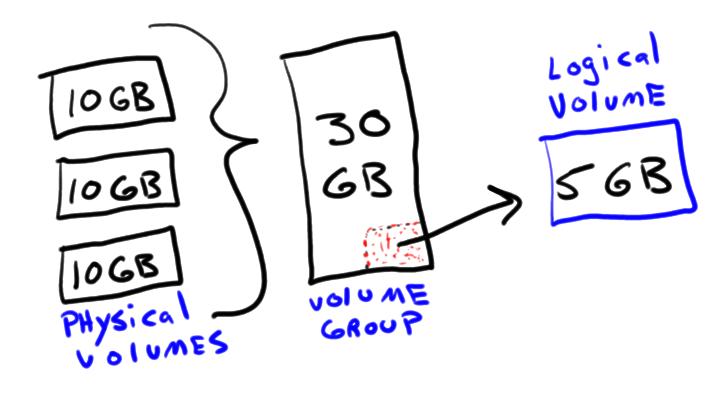 10GB
10GB
10GB
PHysical
VOlUMES
30
GB
VOlUME
GROUP
Logical
VOLUME
5 GB